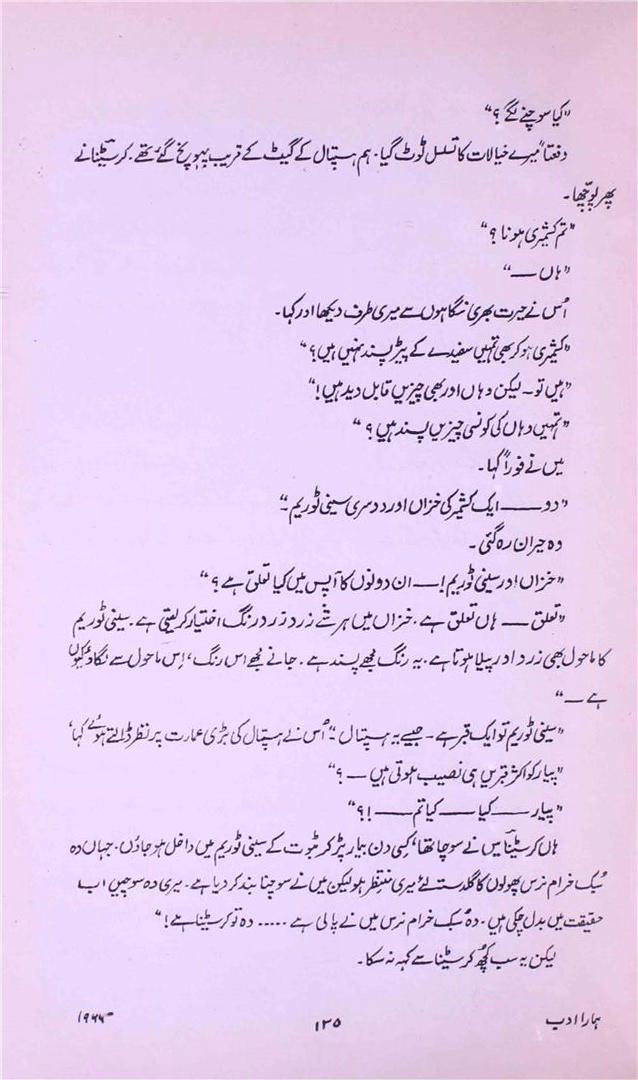 "کیا سوچنے لگے؟"
دفعتاً میرے خیالات کا تسلسل ٹوٹ گیا۔ ہم ہسپتال کے گیٹ کے قریب پہونچ گئے تھے۔ کرسٹینا نے
پھر پوچھا۔
"تم کشمیری ہو نا؟"
"ہاں —"
اُس نے حیرت بھری نگاہوں سے میری طرف دیکھا اور کہا۔
"کشمیری ہو کر بھی تمہیں سفیدے کے پیڑ پسند نہیں ہیں؟"
"ہیں تو۔ لیکن وہاں اور بھی چیزیں قابل دید ہیں!"
"تمہیں وہاں کی کونسی چیزیں پسند ہیں؟"
میں نے فوراً کہا۔
"دو —— ایک کشمیر کی خزاں اور دوسری سینی ٹوریم۔"
وہ حیران رہ گئی۔
"خزاں اور سینی ٹوریم! — ان دونوں کا آپس میں کیا تعلق ہے؟"
"تعلق — ہاں تعلق ہے۔ خزاں میں ہر شے زرد زرد رنگ اختیار کر لیتی ہے۔ سینی ٹوریم
کا ماحول بھی زرد اور پیلا ہوتا ہے۔ یہ رنگ مجھے پسند ہے۔ جانے مجھے اس رنگ، اِس ماحول سے لگاؤ کیوں
ہے —"
"سینی ٹوریم تو ایک قبر ہے۔ جیسے یہ ہسپتال۔" اُس نے ہسپتال کی بڑی عمارت پر نظر ڈالتے ہوئے کہا،
"پیار کو اکثر قبریں ہی نصیب ہوتی ہیں — ؟"
"پیار —— کیا —— کیا تم —— !؟"
ہاں کرسیٹنا میں نے سوچا تھا، کسی دن بیمار پڑ کر بٹوت کے سینی ٹوریم میں داخل ہو جاؤں۔ جہاں وہ
سُبک خرام نرس پھولوں کا گلدستہ لئے میری منتظر ہو لیکن میں نے سوچنا بند کر دیا ہے۔ میری وہ سوچیں اب
حقیقت میں بدل چکی ہیں۔ وہ سُبک خرام نرس میں نے پالی ہے ..... وہ تو کرسیٹنا ہے!"
لیکن یہ سب کچھ کرسیٹنا سے کہہ نہ سکا۔
ہمارا ادب
۱۳۵
۱۹۶۶ء